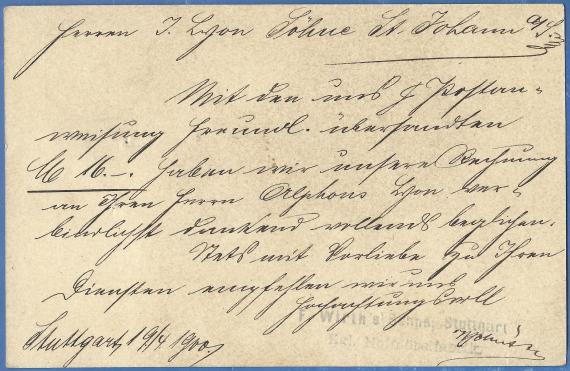 Herren J. Lyon Söhne St. Johann a/S.
Mit den uns p Postan-
weisung freundl. übersandten
M 16.-. haben wir unsere Rechnung
an Ihren Herrn Alphons Lyon ver-
bindlichst dankend vollends beglichen.
Stets mit Vorliebe zu Ihren
Diensten empfehlen wir uns
Hochachtungsvoll
F. Wirth's Söhne, Stuttgart
Stuttgart 19/4 1900.